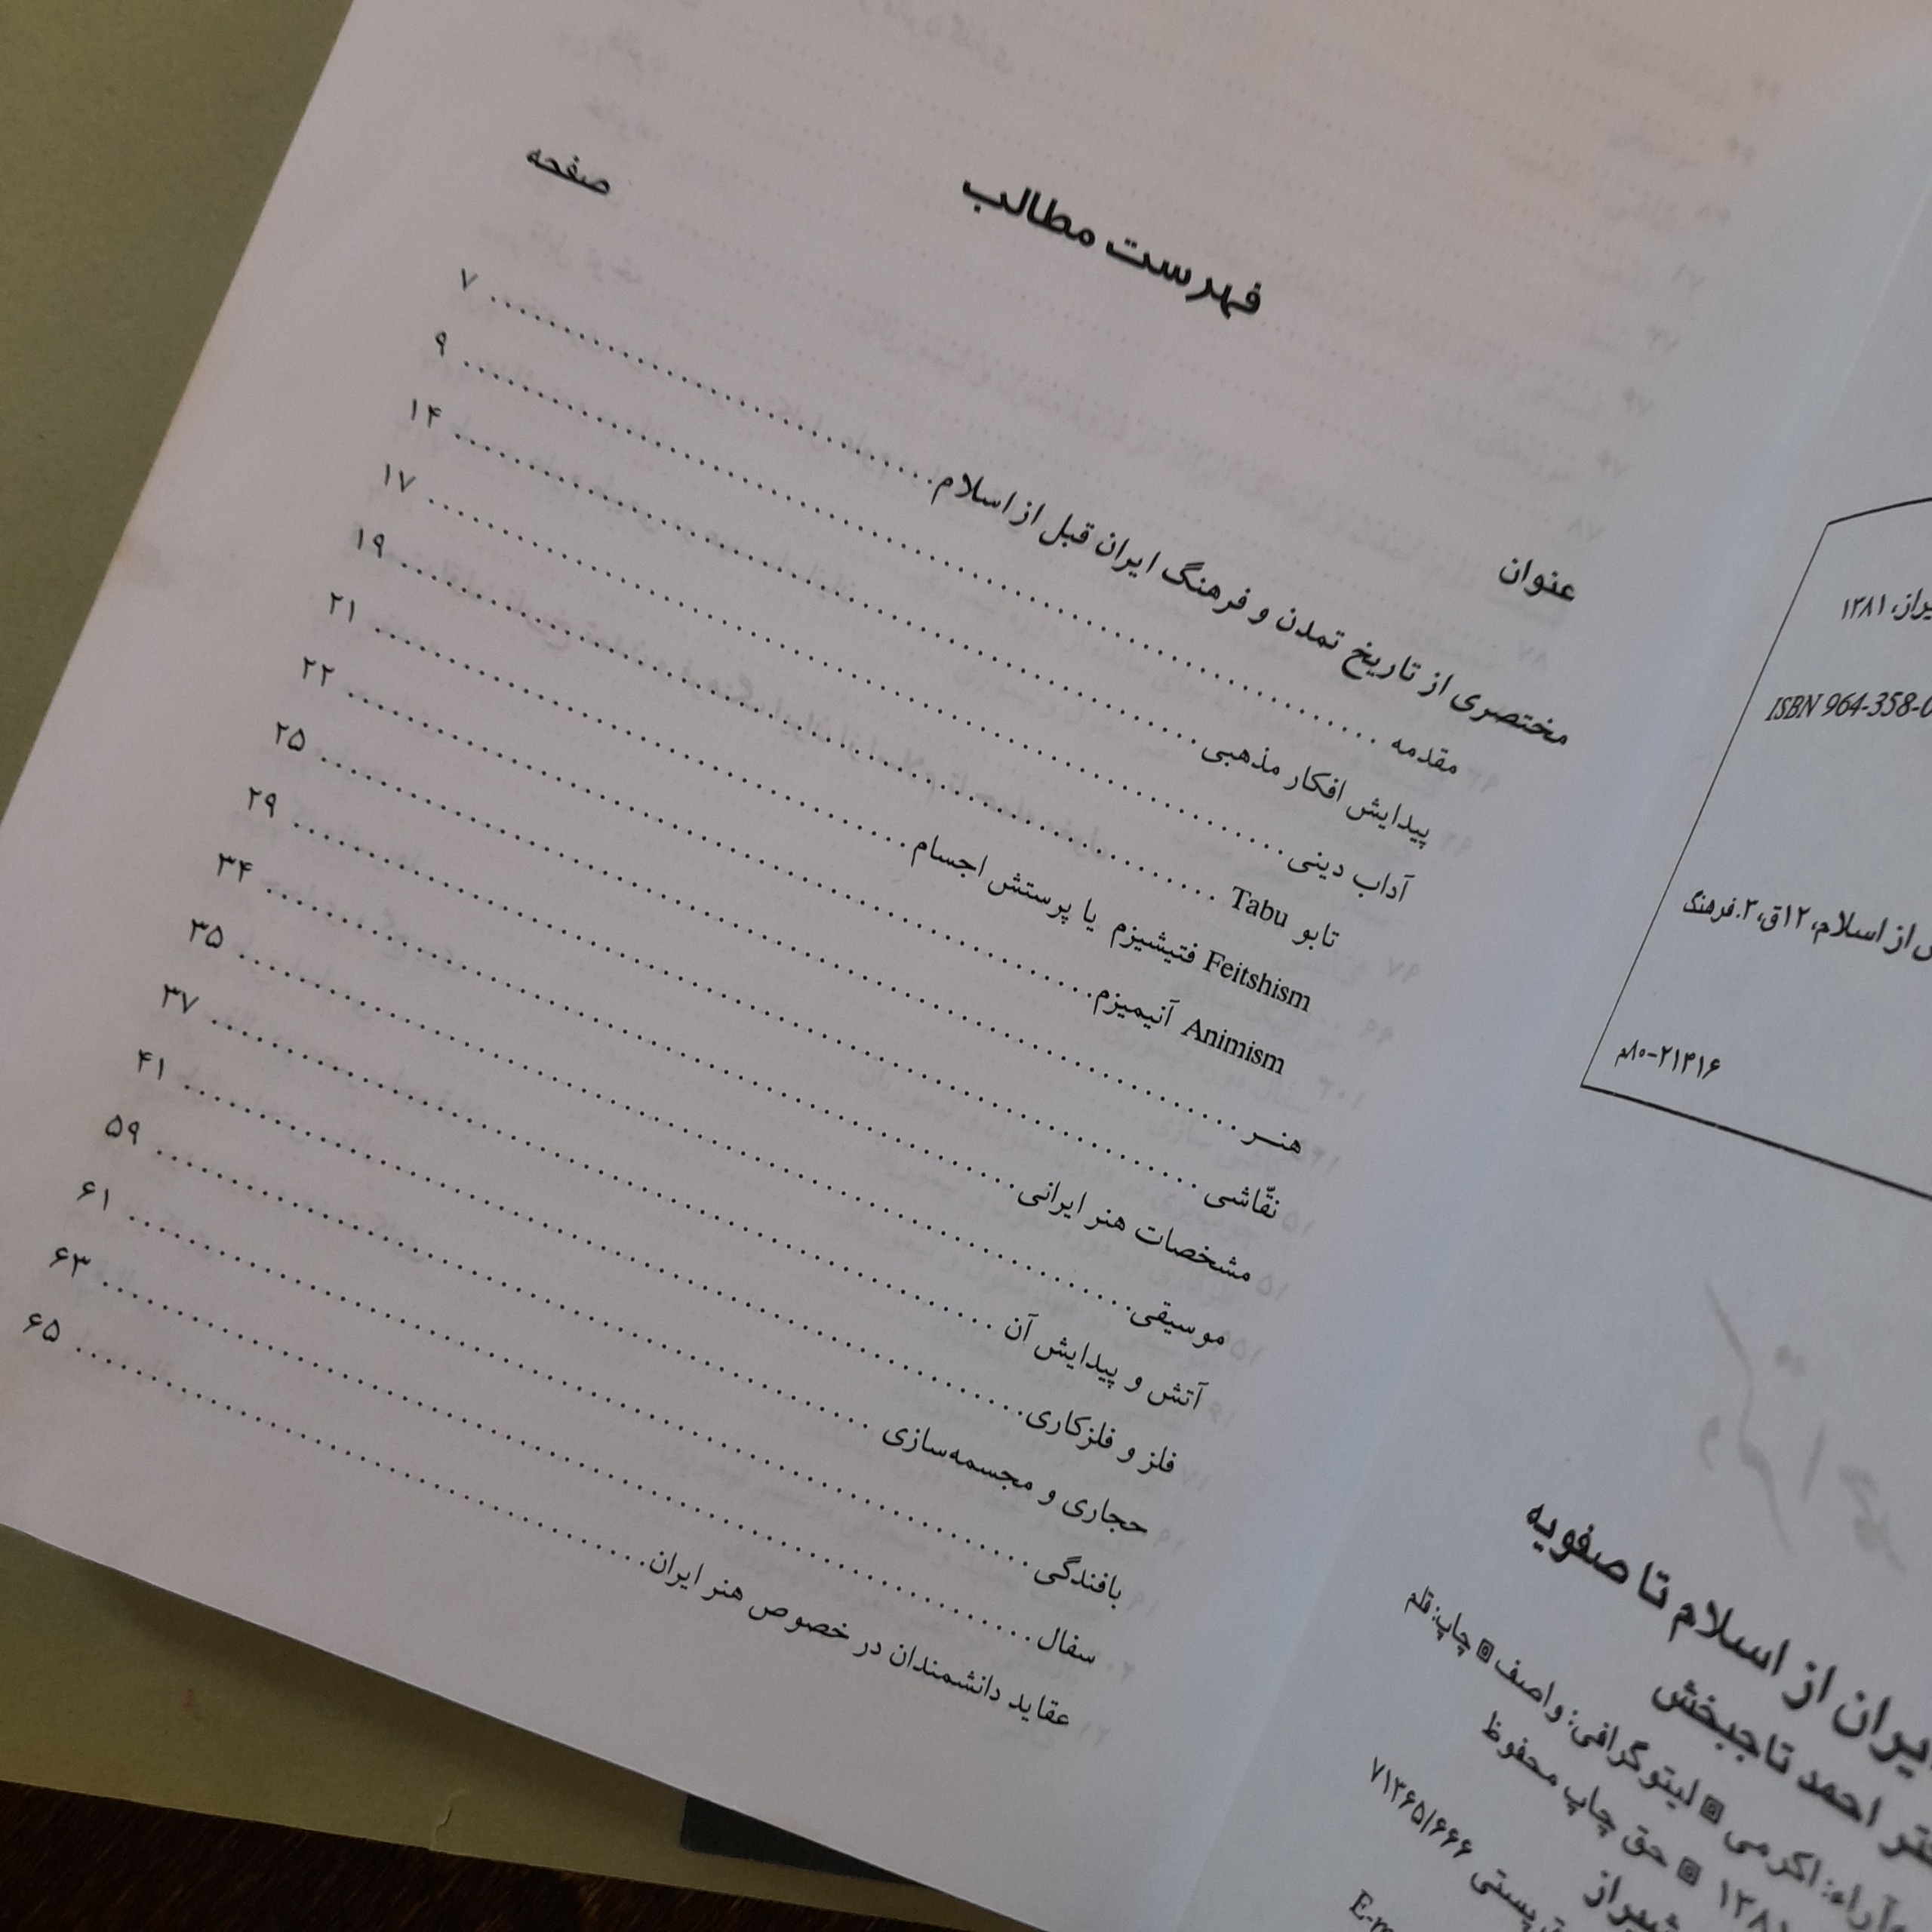 یراز، ۱۳۸۱
ISBN 964-358-0
از اسلام، ۱۲ق، ۲. فرهنگ
۲۱۴۱۶-۸۰م
یران از اسلام تا صفویه
احمد تاجبخش
آراء: اکرمی ▣ لیتوگرافی: واصف ▣ چاپ: قلم
۱۳۸۱ ▣ حق چاپ محفوظ
شیراز
پستی ۷۱۳۶۵/۶۶۶
E-m
فهرست مطالب
عنوان صفحه
مختصری از تاریخ تمدن و فرهنگ ایران قبل از اسلام ۷
مقدمه ۹
پیدایش افکار مذهبی ۱۴
آداب دینی ۱۷
تابو Tabu ۱۹
Feitshism فتیشیزم یا پرستش اجسام ۲۱
Animism آنیمیزم ۲۲
هنر ۲۵
نقّاشی ۲۹
مشخصات هنر ایرانی ۳۴
موسیقی ۳۵
آتش و پیدایش آن ۳۷
فلز و فلزکاری ۴۱
حجاری و مجسمه‌سازی ۵۹
بافندگی ۶۱
سفال ۶۳
عقاید دانشمندان در خصوص هنر ایران ۶۵